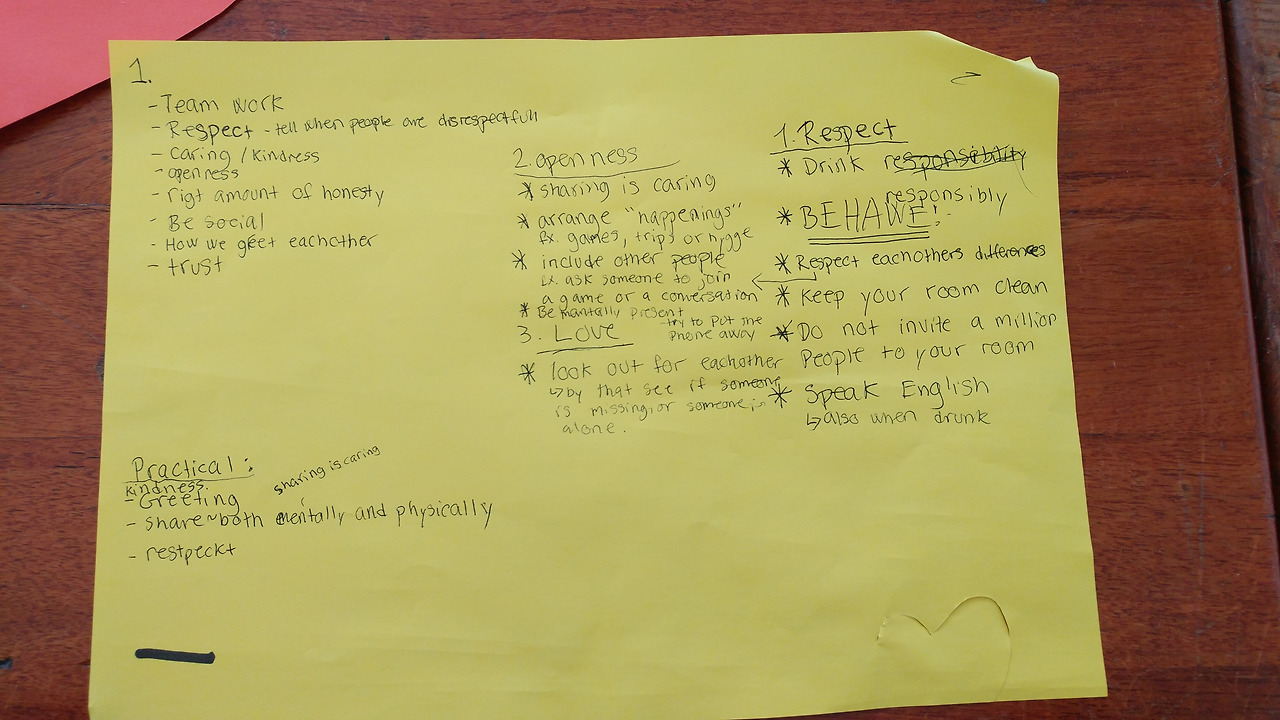 1.
- Team work
- Respect - tell when people are disrespectfull
- Caring / Kindness
- openness
- rigt amount of honesty
- Be social
- How we greet eachother
- trust
Practical:
kindness.
- Greeting
sharing is caring
- share ~ both mentally and physically
- restpeckt
2. openness
* sharing is caring
* arrange "happenings"
Ex. games, trips or hygge
* include other people
Ex. ask someone to join
a game or a conversation
* Be mantally present
- try to put the
phone away
3. LOVE
* look out for eachother
↳ by that see if someone
is missing, or someone is
alone.
1. Respect
* Drink responsibility
responsibly
* BEHAWE!
* Respect eachothers differences
* Keep your room clean
* Do not invite a million
people to your room
* Speak English
↳ also when drunk